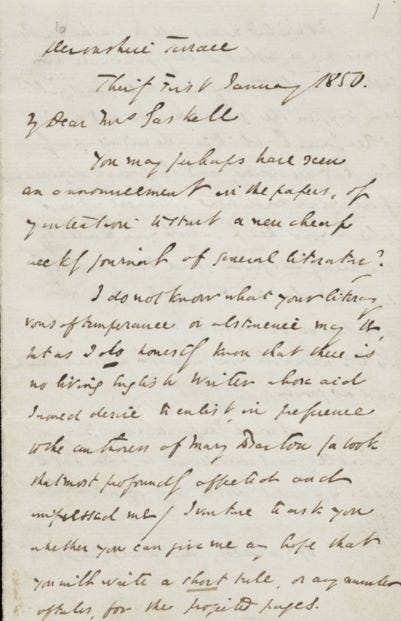 1
Devonshire Terrace
Thirty First January 1850.
My Dear Mrs Gaskell
You may perhaps have seen
an announcement in the papers, of
my intention to start a new cheap
weekly journal of general literature?
I do not know what your literary
vows of temperance or abstinence may be,
but as I do honestly know that there is
no living English Writer whose aid
I would desire to enlist, in preference
to the authoress of Mary Barton (a book
that most profoundly affected and
impressed me) I venture to ask you
whether you can give me any hope that
you will write a short tale, or any number
of tales, for the projected pages.